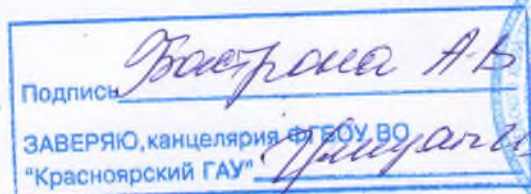 Подпись Бастрона А.В
ЗАВЕРЯЮ, канцелярия ФГБОУ ВО
"Красноярский ГАУ"